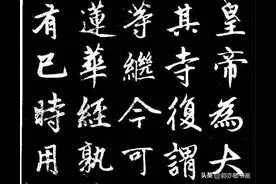 皇帝為大
其寺復謂
等繼今可
蓮華經孰
有已時用
头条 @郭亦敏書法